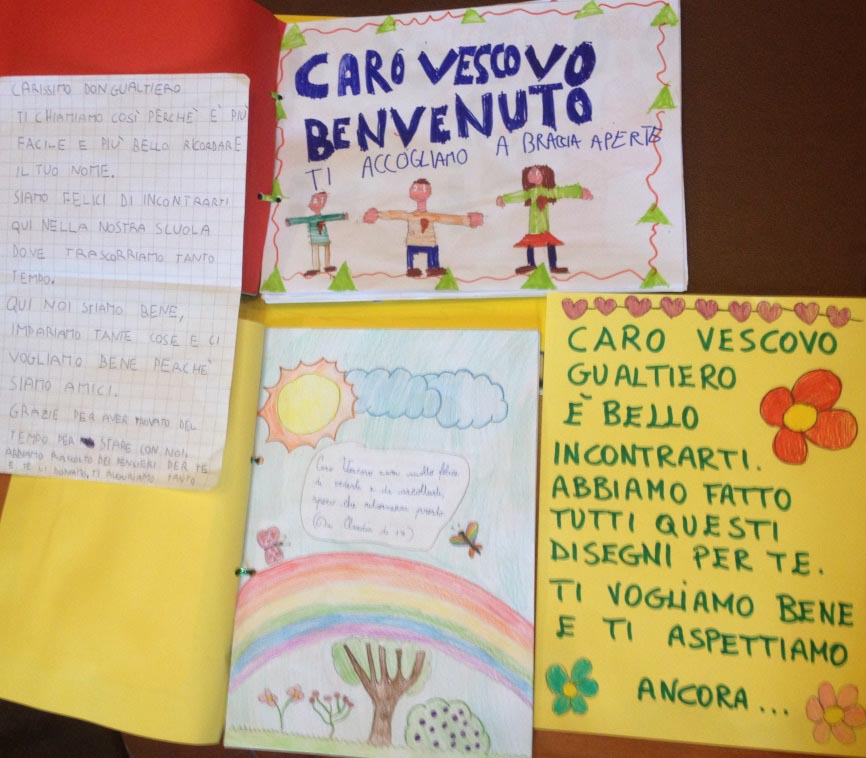 CARISSIMO DON GUALTIERO
TI CHIAMIAMO COSÌ PERCHÈ È PIÙ
FACILE E PIÙ BELLO RICORDARE
IL TUO NOME.
SIAMO FELICI DI INCONTRARTI
QUI NELLA NOSTRA SCUOLA
DOVE TRASCORRIAMO TANTO
TEMPO.
QUI NOI STIAMO BENE,
IMPARIAMO TANTE COSE E CI
VOGLIAMO BENE PERCHÈ
SIAMO AMICI.
GRAZIE PER AVER TROVATO DEL
TEMPO PER STARE CON NOI.
ABBIAMO RACCOLTO DEI PENSIERI PER TE
E TE LI DONIAMO. TI AUGURIAMO TANTO
CARO VESCOVO
BENVENUTO
TI ACCOGLIAMO A BRACCIA APERTE
Caro Vescovo sono molto felice
di vederti e di ascoltarti,
spero che ritornerai presto.
CARO VESCOVO
GUALTIERO
È BELLO
INCONTRARTI.
ABBIAMO FATTO
TUTTI QUESTI
DISEGNI PER TE.
TI VOGLIAMO BENE
E TI ASPETTIAMO
ANCORA...